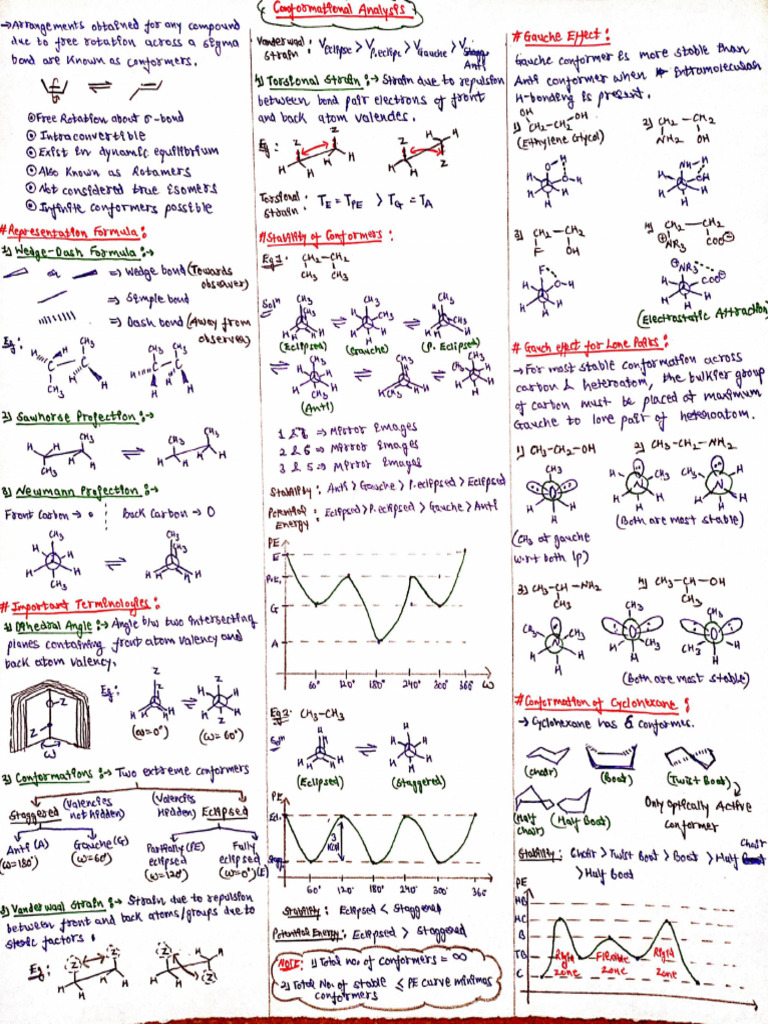 Conformational Analysis
→Arrangements obtained for any compound
due to free rotation across a sigma
bond are known as conformers.
Free Rotation about σ-bond
Intraconvertible
Exist in dynamic equilibrium
Also known as Rotamers
Not considered true isomers
Infinite conformers possible
#Representation Formula:
1) Wedge-Dash Formula:→
or ⇒ Wedge bond (Towards
observer)
⇒ Simple bond
⇒ Dash bond (Away from
observer)
Eg:
CH3 CH3
H H
H H
CH3 CH3
H H
2) Sawhorse Projection:→
H H CH3
CH3 H
CH3 CH3
H H
3) Newmann Projection:→
Front Carbon → o Back Carbon → O
CH3
H H
H H
CH3
⇌
CH3
CH3
H H
# Important Terminologies:
1) Dihedral Angle:→ Angle b/w two intersecting
planes containing front atom valency and
back atom valency.
Z
Z
ω
Eg:
Z
Z
H H
(ω=0°)
⇌
Z
H Z
H H
(ω=60°)
2) Conformations:→ Two extreme conformers
Staggered (Valencies
not hidden)
(Valencies
Hidden) Eclipsed
Anti (A)
(ω=180°)
Gauche (G)
(ω=60°)
Partially (PE)
eclipsed
(ω=120°)
Fully
eclipsed
(ω=0°)(E)
3) Vanderwaal Strain:→ Strain due to repulsion
between front and back atoms/groups due to
steric factors.
Eg:
Z Z
H H
H
Z H
H Z
Vanderwaal
Strain : VEclipse > VP.eclipse > VGauche > VStagg.
Anti
4) Torsional Strain:→ Strain due to repulsion
between bond pair electrons of front
and back atom valencies.
Eg:
Z Z
H H
Z H
H Z
Torsional
Strain : TE = TPE > TG = TA
#Stability of Conformers:
Eg1: CH2-CH2
CH3 CH3
Soln
CH3
CH3
H H
(Eclipsed)
⇌
CH3
H CH3
H H
(Gauche)
⇌
CH3
H CH3
(P. Eclipsed)
⇌
CH3
H H
H H
CH3
(Anti)
⇌
CH3
CH3 H
⇌
CH3
CH3 H
H H
⇒ Mirror Images
2 & 6 ⇒ Mirror Images
3 & 5 ⇒ Mirror Images
Stability: Anti > Gauche > P.eclipsed > Eclipsed
Potential
Energy : Eclipsed > P.eclipsed > Gauche > Anti
PE
E
P.E.
G
A
60° 120° 180° 240° 300° 360° ω
Eg2: CH3-CH3
Soln
H
H H
(Eclipsed)
⇌
H
H H
H H
H
(Staggered)
PE
Ecl.
Stag.
3
Kcal
60° 120° 180° 240° 300° 360
Stability: Eclipsed < Staggered
Potential Energy: Eclipsed > Staggered
NOTE: 1) Total no. of conformers = ∞
2) Total No. of stable ≤ PE curve minimas
conformers
# Gauche Effect:
Gauche conformer is more stable than
Anti conformer when Intramolecular
H-bonding is present.
1) OH OH
CH2-CH2
(Ethylene Glycol)
2) CH2 - CH2
NH2 OH
O H
H O-H
H H
H
NH-H
H OH
H H
H
3) CH2 - CH2
F OH
4) CH2 - CH2
⊕NR3 COO⊖
F
H O-H
H H
H
⊕NR3
H COO⊖
H H
H
(Electrostatic Attraction)
# Gauch effect for Lone Pairs:
→For most stable conformation across
carbon & heteroatom, the bulkier group
of carbon must be placed at maximum
Gauche to lone pair of heteroatom.
1) CH3-CH2-OH
2) CH3-CH2-NH2
CH3
O
H H
H
(CH3 at gauche
w.r.t both lp)
H CH3
N
H H
H
CH3 H
N
H H
H
(Both are most stable)
3) CH3-CH-NH2
CH3
4) CH3-CH-OH
CH3
CH3 CH3
N
H H
H
CH3
O
H CH3
H
CH3
O
CH3 H
H
(Both are most stable)
#Conformation of Cyclohexane:
→ Cyclohexane has 6 conformers.
(Chair)
(Boat)
(Twist Boat)
(Half
Chair)
(Half Boat)
Only optically Active
conformer
Stability: Chair > Twist Boat > Boat > Half Chair
> Half Boat
PE
HB
HC
B
TB
C
Rigid
zone
Flexible
zone
Rigid
zone